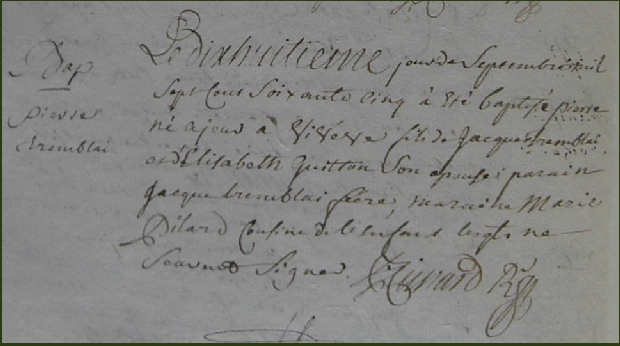 Bap
pierre
tremblai
Le dixhuitieme jour de Septembre mil
Sept Cens Soixante Cinq à été baptisé pierre
né ce jour a fils de Jacque tremblai
et d'Elisabeth Guitton Son epouse; parain
Jacque tremblai frere, maraine Marie
Pilard Cousine de l'enfant lesqls ne
Scavent Signer.